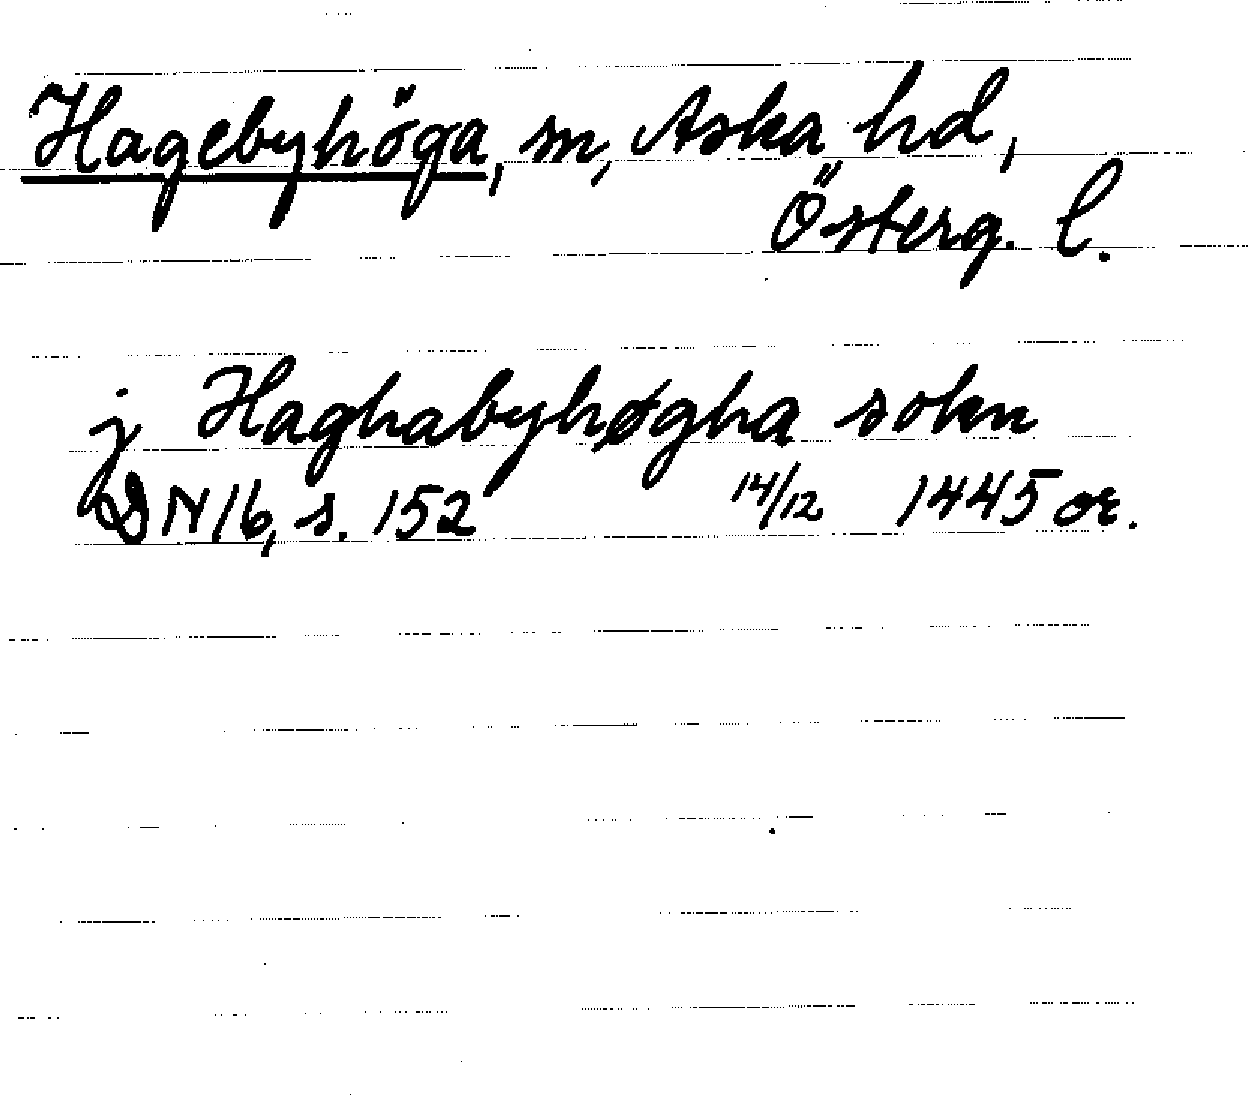 Hagebyhöga, sn, Aska hd,
Österg. l.
j Haghabyhøgha sokn
DN 16, s. 152 14/12 1445 or.